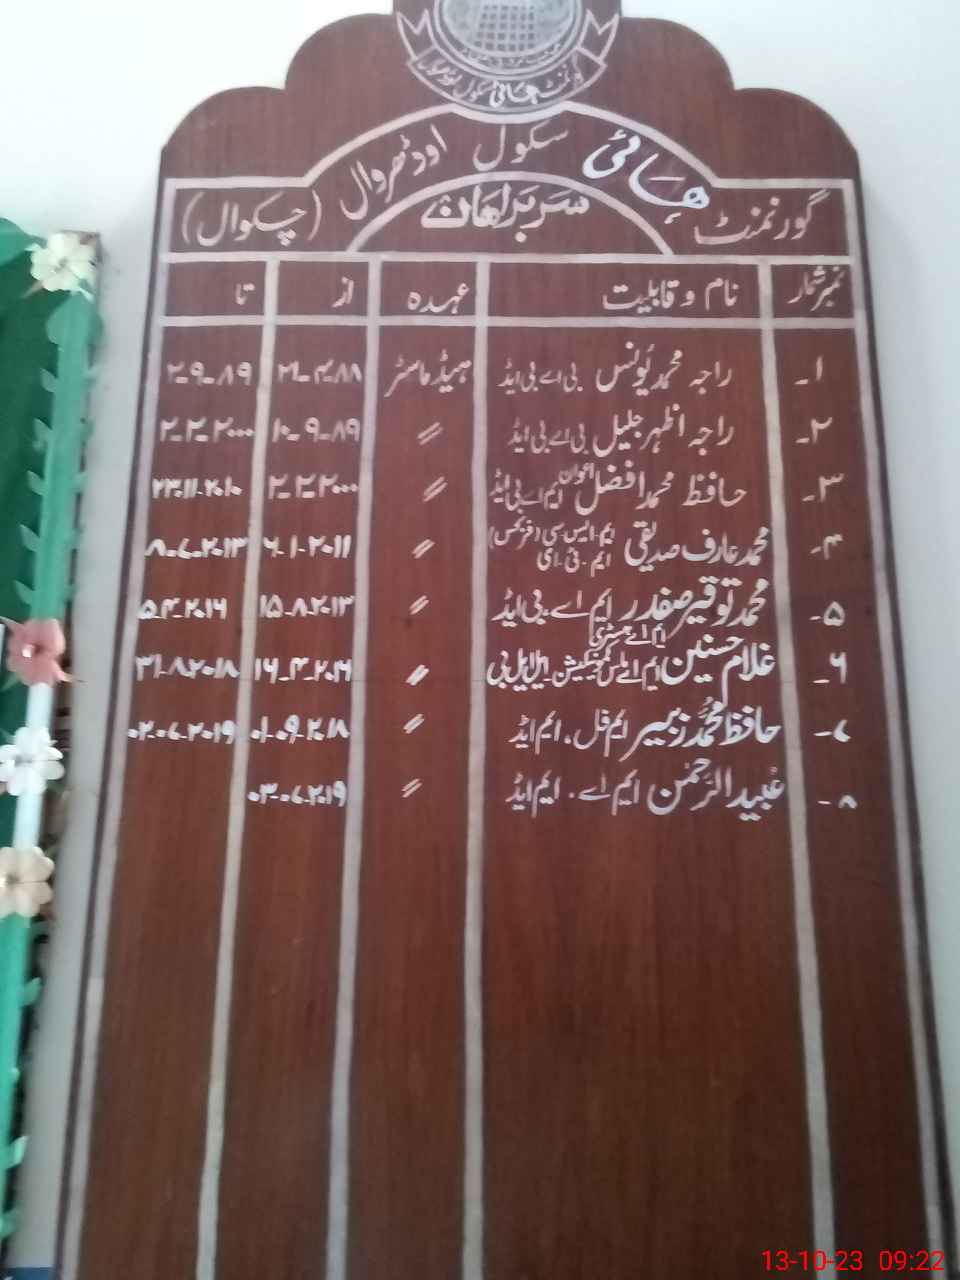 گورنمنٹ ہائی سکول اوڈھروال (چکوال)
گورنمنٹ ہائی سکول اوڈھروال (چکوال)
سربراہان
نمبر شمار نام و قابلیت عہدہ از تا
۱۔ راجہ محمد یُونس بی اے بی ایڈ ہیڈ ماسٹر ۲۱-۴-۸۸ ۲-۹-۸۹
۲۔ راجہ اظہر جلیل بی اے بی ایڈ // ۱۰-۹-۸۹ ۲-۲-۲۰۰۰
۳۔ حافظ محمد افضل اعوان ایم اے بی ایڈ // ۲-۲-۲۰۰۰ ۲۳-۱۱-۲۰۱۰
۴۔ محمد عارف صدیقی ایم۔ایس۔سی (فزکس) ایم۔ٹی۔ای // ۶-۱-۲۰۱۱ ۸-۷-۲۰۱۳
۵۔ محمد توقیر صفدر ایم اے۔بی ایڈ // ۱۵-۸-۲۰۱۳ ۵-۴-۲۰۱۶
۶۔ غلام حسنین ایم اے ہسٹری ایم اے ماس کمیونیکیشن۔ایل ایل بی // ۱۶-۴-۲۰۱۶ ۳۱-۸-۲۰۱۸
۷۔ حافظ محمّد زبیر ایم فل، ایم ایڈ // ۰۱-۰۹-۲۰۱۸ ۰۲-۰۷-۲۰۱۹
۸۔ عُبید الرّحمٰن ایم اے۔ ایم ایڈ // ۰۳-۰۷-۲۰۱۹
13-10-23 09:22